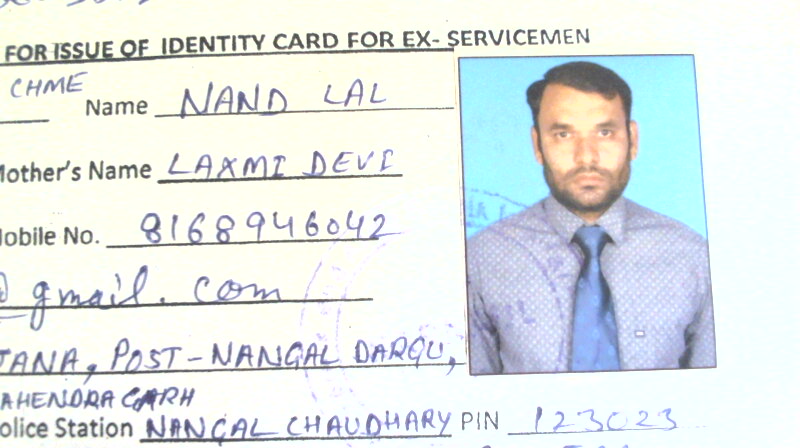 FOR ISSUE OF IDENTITY CARD FOR EX- SERVICEMEN
CHME
Name NAND LAL
Mother's Name LAXMI DEVI
Mobile No. 8168946042
@gmail.com
TANA, POST-NANGAL DARGU,
MAHENDRA GARH
Police Station NANGAL CHAUDHARY PIN 123023